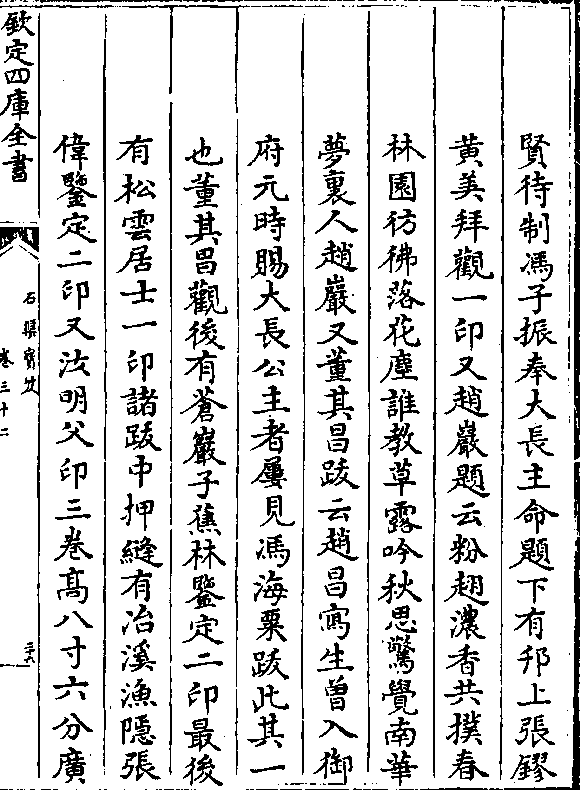 賢待制馮子振奉大長主命題下有邗上張鏐
黄美拜觀一印又趙巖題云粉翅濃香共撲春
林園彷彿落花塵誰教草露吟秋思驚覺南華
夢裏人趙巖又董其昌跋云趙昌寫生曾入御
府元時賜大長公主者屢見馮海粟跋此其一
也董其昌觀後有蒼巖子蕉林鑒定二印最後
有松雲居士一印諸跋中押縫有冶溪漁隱張
偉鑒定二印又汯明父印三卷髙八寸六分廣
欽定四庫全書
石渠寳笈
卷三十二
三六